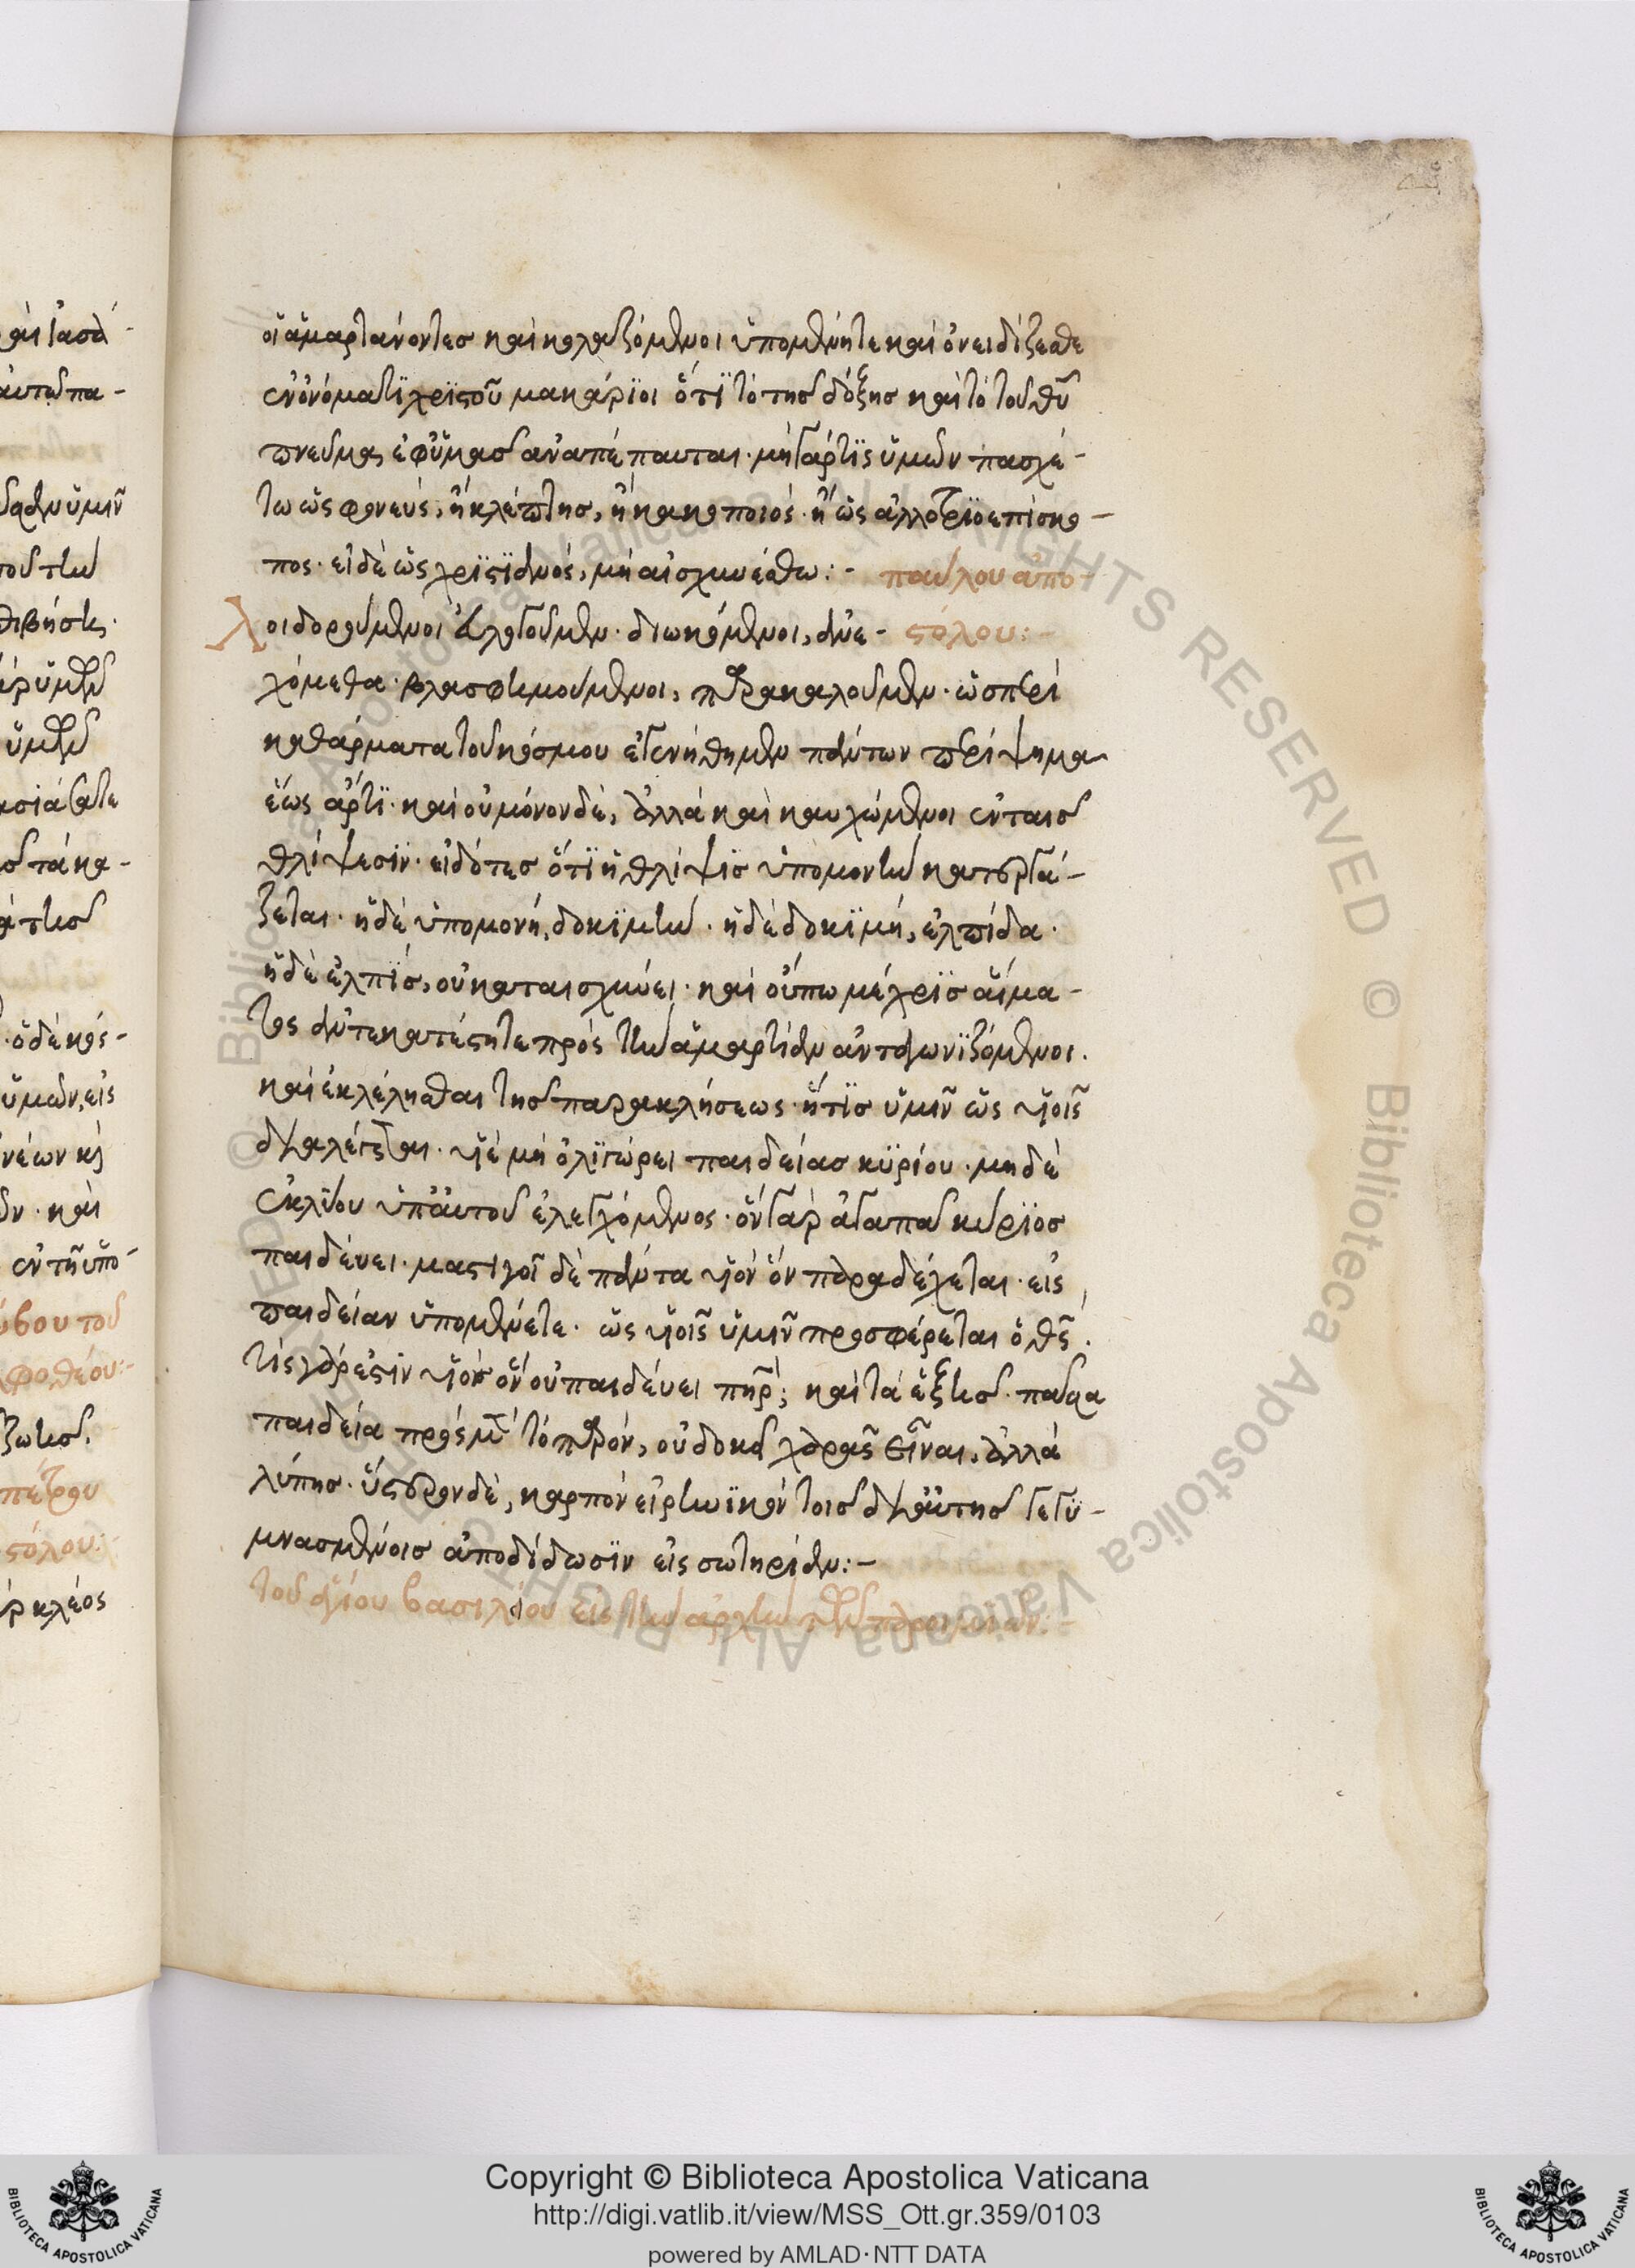 οἱ ἁμαρτάνοντες καὶ κολαζόμενοι ὑπομένητε καὶ ὀνειδίζεσθε
ἐν ὀνόματϊ χρϊστοῦ μακάρϊοι ὅτϊ τὸ τῆς δόξης καὶ τὸ τοῦ θῦ
πνεῦμα ἐφ ὑμᾶς ἀναπέπαυται· μὴ γάρ τϊς ὑμῶν πασχέ-
τω ὡς φονεύς, ἢ κλέπτης, ἢ κακοποιός· ἢ ὡς ἀλλοτρϊοεπίσκο-
πος· εἰ δὲ ὡς χρϊστϊανός, μὴ αἰσχυνέσθω:- παύλου ἀπο-
λοιδορούμενοι εὐλογοῦμεν· διωκόμενοι, ἀνε- στόλου:-
χόμεθα· βλασφημούμενοι, παρακαλοῦμεν· ὡσπερὶ
καθάρματα τοῦ κόσμου ἐγενήθημεν πάντων περίψημα
ἕως ἄρτϊ· καὶ οὐ μόνον δέ, ἀλλὰ καὶ καυχώμενοι ἐν ταῖς
θλίψεσϊν· εἰδότες ὅτϊ ἡ θλίψϊς ὑπομονὴν κατεργά-
ζεται· ἡ δὲ ὑπομονή, δοκϊμήν· ἡ δὲ δοκϊμή, ἐλπίδα·
ἡ δὲ ἐλπϊς, οὐ καταισχύνει· καὶ οὔπω μέχρϊς αἵμα-
τος ἀντεκατέστητε πρὸς τὴν ἁμαρτίαν ἀνταγωνϊζόμενοι.
καὶ ἐκλέλησθαι τῆς παρακλήσεως ἥτϊς ὑμῖν ὡς υἱοῖς
διαλέγεται· υἱέ μὴ ὀλϊγώρει παιδείας κϋρίου· μηδὲ
ἐκλύου ὑπ αὐτοῦ ἐλεγχόμενος· ὃν γὰρ ἀγαπᾶ κύρϊος
παιδεύει· μαστιγοῖ δὲ πάντα υἱὸν ὃν παραδέχεται· εἰς
παιδείαν ὑπομένετε· ὡς υἱοῖς ὑμῖν προσφέρεται ὁ θς.
τίς γάρ ἐστϊν υἱὸς ὃν οὐ παιδεύει πηρ; καὶ τὰ ἑξῆς· πᾶσα
παιδεία πρὸς μὲν τὸ παρόν, οὐ δοκεῖ χαρᾶς εἶναι, ἀλλὰ
λύπης· ὕστερον δέ, καρπὸν εἰρηνϊκὸν τοῖς δι αὐτῆς γεγϋ-
μνασμένοις ἀποδίδωσϊν εἰς σωτηρίαν:-
τοῦ ἁγίου βασιλείου εἰς τὴν ἀρχὴν τῶν παροιμιῶν:-
Copyright © Biblioteca Apostolica Vaticana
http://digi.vatlib.it/view/MSS_Ott.gr.359/0103
powered by AMLAD·NTT DATA